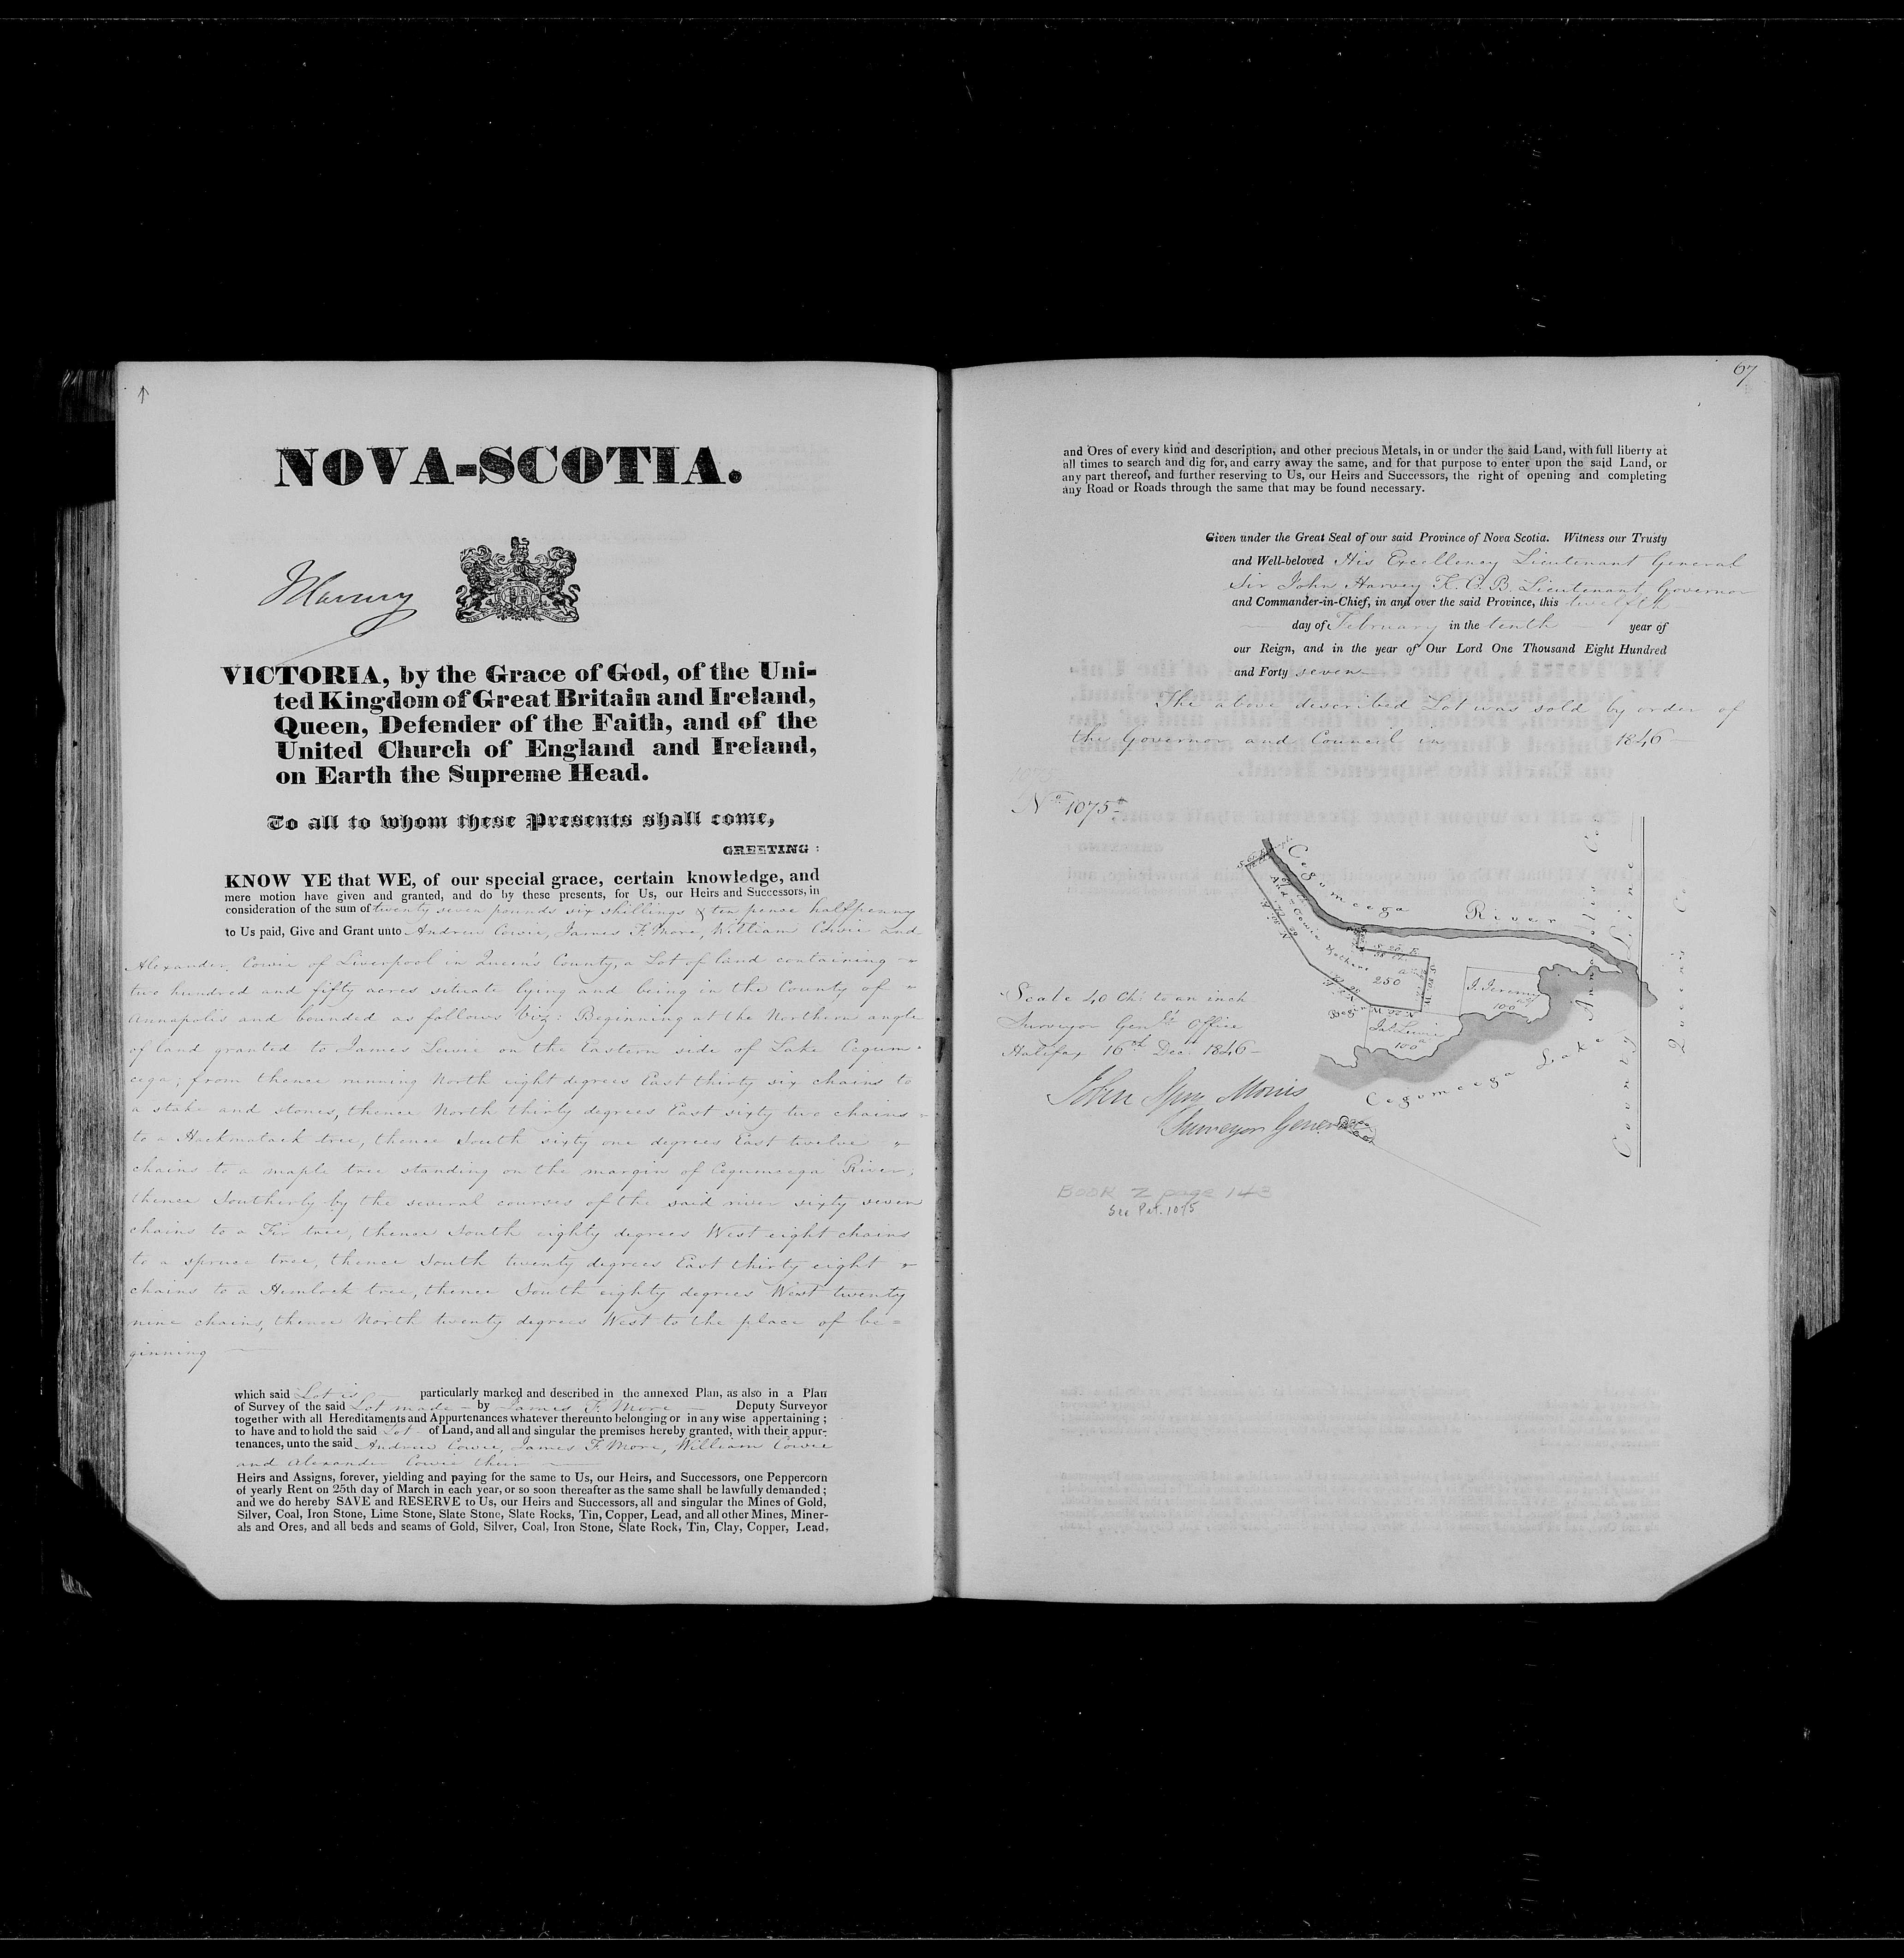 NOVA-SCOTIA.
J Harvey
VICTORIA, by the Grace of God, of the Uni-
ted Kingdom of Great Britain and Ireland,
Queen, Defender of the Faith, and of the
United Church of England and Ireland,
on Earth the Supreme Head.
To all to whom these Presents shall come,
GREETING:
KNOW YE that WE, of our special grace, certain knowledge, and
mere motion have given and granted, and do by these presents, for Us, our Heirs and Successors, in
consideration of the sum of twenty seven pounds six shillings & ten pense halfpenny
to Us paid, Give and Grant unto Andrew Cowie, James F. More, William Cowie and
Alexander Cowie of Liverpool in Queen's County, a Lot of land containing
two hundred and fifty acres situate lying and being in the County of
Annapolis and bounded as follows Viz: Beginning at the Northern angle
of land granted to James Lewie on the Eastern side of Lake Cegum-
cega; from thence running North eight degrees East thirty six chains to
a stake and stones, thence North thirty degrees East sixty two chains
to a Hackmatack tree, thence South sixty one degrees East twelve
chains to a maple tree standing on the margin of Cegumcega River,
thence Southerly by the several courses of the said river sixty seven
chains to a Fir tree, thence South eighty degrees West eight chains
to a spruce tree, thence South twenty degrees East thirty eight
chains to a Hemlock tree, thence South eighty degrees West twenty
nine chains, thence North twenty degrees West to the place of be=
ginning
which said Lot is particularly marked and described in the annexed Plan, as also in a Plan
of Survey of the said Lot made by James F. More Deputy Surveyor
together with all Hereditaments and Appurtenances whatever thereunto belonging or in any wise appertaining;
to have and to hold the said Lot of Land, and all and singular the premises hereby granted, with their appur-
tenances, unto the said Andrew Cowie, James F. More, William Cowie
and Alexander Cowie their
Heirs and Assigns, forever, yielding and paying for the same to Us, our Heirs, and Successors, one Peppercorn
of yearly Rent on 25th day of March in each year, or so soon thereafter as the same shall be lawfully demanded;
and we do hereby SAVE and RESERVE to Us, our Heirs and Successors, all and singular the Mines of Gold,
Silver, Coal, Iron Stone, Lime Stone, Slate Stone, Slate Rocks, Tin, Copper, Lead, and all other Mines, Miner-
als and Ores, and all beds and seams of Gold, Silver, Coal, Iron Stone, Slate Rock, Tin, Clay, Copper, Lead,
67
and Ores of every kind and description, and other precious Metals, in or under the said Land, with full liberty at
all times to search and dig for, and carry away the same, and for that purpose to enter upon the said Land, or
any part thereof, and further reserving to Us, our Heirs and Successors, the right of opening and completing
any Road or Roads through the same that may be found necessary.
Given under the Great Seal of our said Province of Nova Scotia. Witness our Trusty
and Well-beloved His Excellency Lieutenant General
Sir John Harvey K. C. B. Lieutenant Governor
and Commander-in-Chief, in and over the said Province, this twelfth
day of February in the tenth year of
our Reign, and in the year of Our Lord One Thousand Eight Hundred
and Forty seven
The above described Lot was sold by order of
the Governor and Council in 1846
1075
No. 1075
Cegumcega River
And. Cowie & others
S. 20. E.
250
J. Jeremy
100
Begin
Jas. Lewie
100
Cegomcega Lake
Annapolis Co
County Line
Queens Co
Scale 40 Chs. to an inch
Surveyor Genl's. Office
Halifax 16th Dec. 1846
John Spry Morris
Surveyor General
BOOK Z page 143
See Pet. 1075